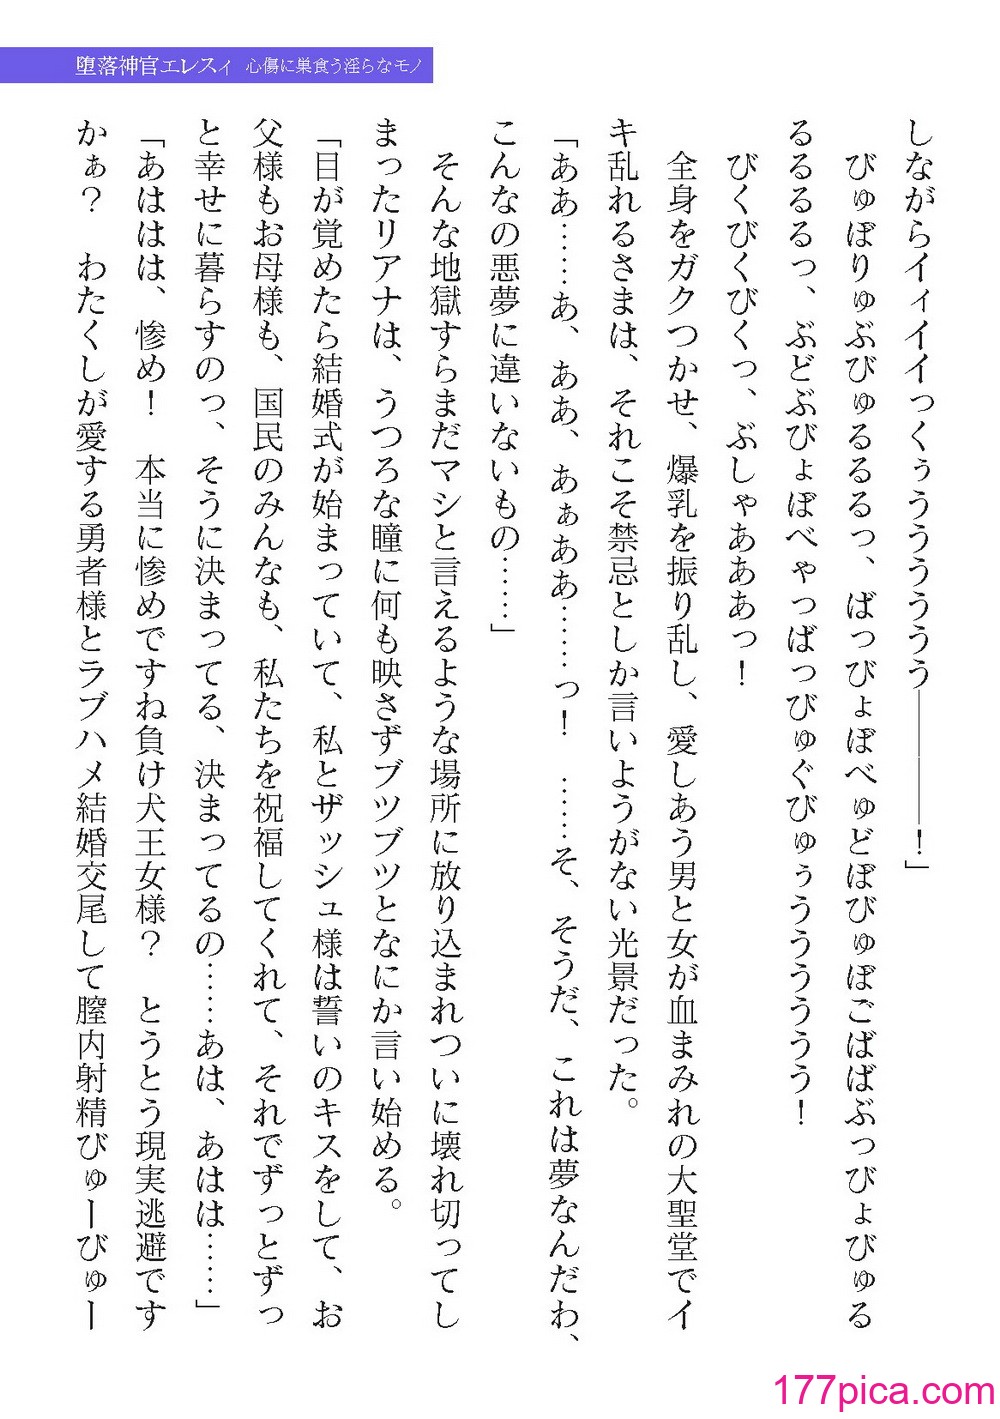 堕落神官エレスィ 心傷に巣食う淫らなモノ
しながらイィイイっくぅううううううう――――！」
　びゅぽりゅぶびゅるるるっ、ばっびょぼべゅどぽびゅぽごばばぶっびょびゅる
るるるるっ、ぶどぶびょぼべゃっばっびゅぐびゅぅうううううう！
　びくびくびくっ、ぶしゃあああっ！
　全身をガクつかせ、爆乳を振り乱し、愛しあう男と女が血まみれの大聖堂でイ
キ乱れるさまは、それこそ禁忌としか言いようがない光景だった。
「ああ……あ、ああ、あぁああ……っ！　……そ、そうだ、これは夢なんだわ、
こんなの悪夢に違いないもの……」
　そんな地獄すらまだマシと言えるような場所に放り込まれついに壊れ切ってし
まったリアナは、うつろな瞳に何も映さずブツブツとなにか言い始める。
「目が覚めたら結婚式が始まっていて、私とザッシュ様は誓いのキスをして、お
父様もお母様も、国民のみんなも、私たちを祝福してくれて、それでずっとずっ
と幸せに暮らすのっ、そうに決まってる、決まってるの……あは、あはは……」
「あははは、惨め！　本当に惨めですね負け犬王女様？　とうとう現実逃避です
かぁ？　わたくしが愛する勇者様とラブハメ結婚交尾して膣内射精びゅーびゅー
177pica.com